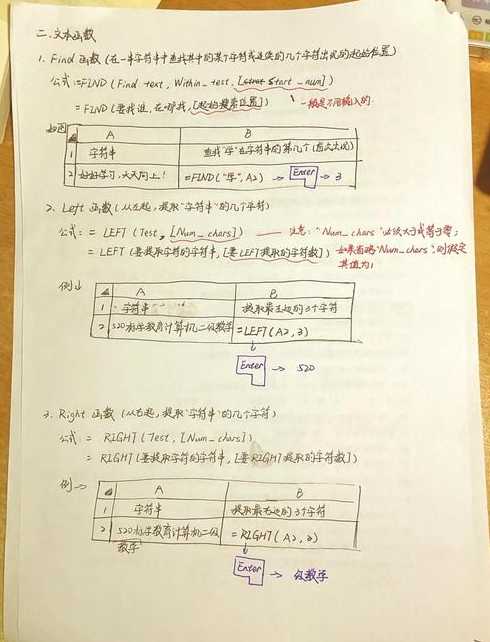 二. 文本函数
1. Find 函数 (在一串字符串中查找其中的某个字符或连续的几个字符出现的起始位置)
公式:=FIND(Find_text, Within_test, [start Start_num])
= FIND(要找谁, 在哪找, [起始搜索位置]) 一般是不用输入的.
如图
A B
1 字符串 查找"学"在字符串的第几个(首次出现)
2 好好学习,天天向上! =FIND("学",A2) → Enter → 3
2. Left 函数 (从左起,提取"字符串"的几个字符)
公式: = LEFT (Test, [Num_chars]) —— 注意: "Num_chars"必须大于或等于零;
= LEFT (要提取字符的字符串, [要LEFT提取的字符数]) 如果省略"Num_chars",则假定
其值为1
例↓
A B
1 字符串 提取最左边的3个字符
2 520 教育计算机二级数学 =LEFT(A2,3)
Enter → 520
3. Right 函数 (从右起,提取"字符串"的几个字符)
公式: = RIGHT (Test, [Num_chars])
= RIGHT (要提取字符的字符串, [要RIGHT提取的字符数])
例→
A B
1 字符串 提取最右边的3个字符
2 520 学教育计算机二级 =RIGHT(A2,3)
数学
Enter → 级数学